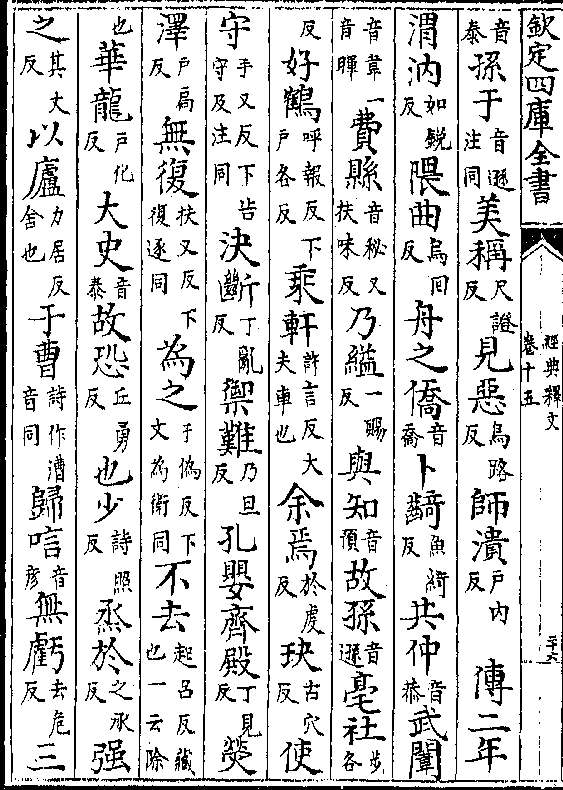 欽定四庫全書 經典釋文 卷十五 二十六
音泰孫于音遜注同美稱尺證反見惡烏路反師潰戶内反 傳二年
渭汭如銳反隈曲烏回反舟之僑音喬卜齮魚綺反共仲音恭武闈
音韋一音暉費縣音秘又扶味反乃縊一賜反與知音預故孫音遜亳社步各
反好鶴呼報反下戶各反乘軒許言反大夫車也余焉於虔反玦古穴反使
守手又反下告守及注同決斷丁亂反禦難乃旦反孔嬰齊殿丁見反熒
澤戶扃反無復扶又反下復逐同為之于偽反下文為衛同不去起呂反藏也一云除
也華龍戶化反大史音泰故恐丘勇反也少詩照反烝於之承反强
之其丈反以廬力居反舍也于曹詩作漕音同歸唁音彥無虧去危反三